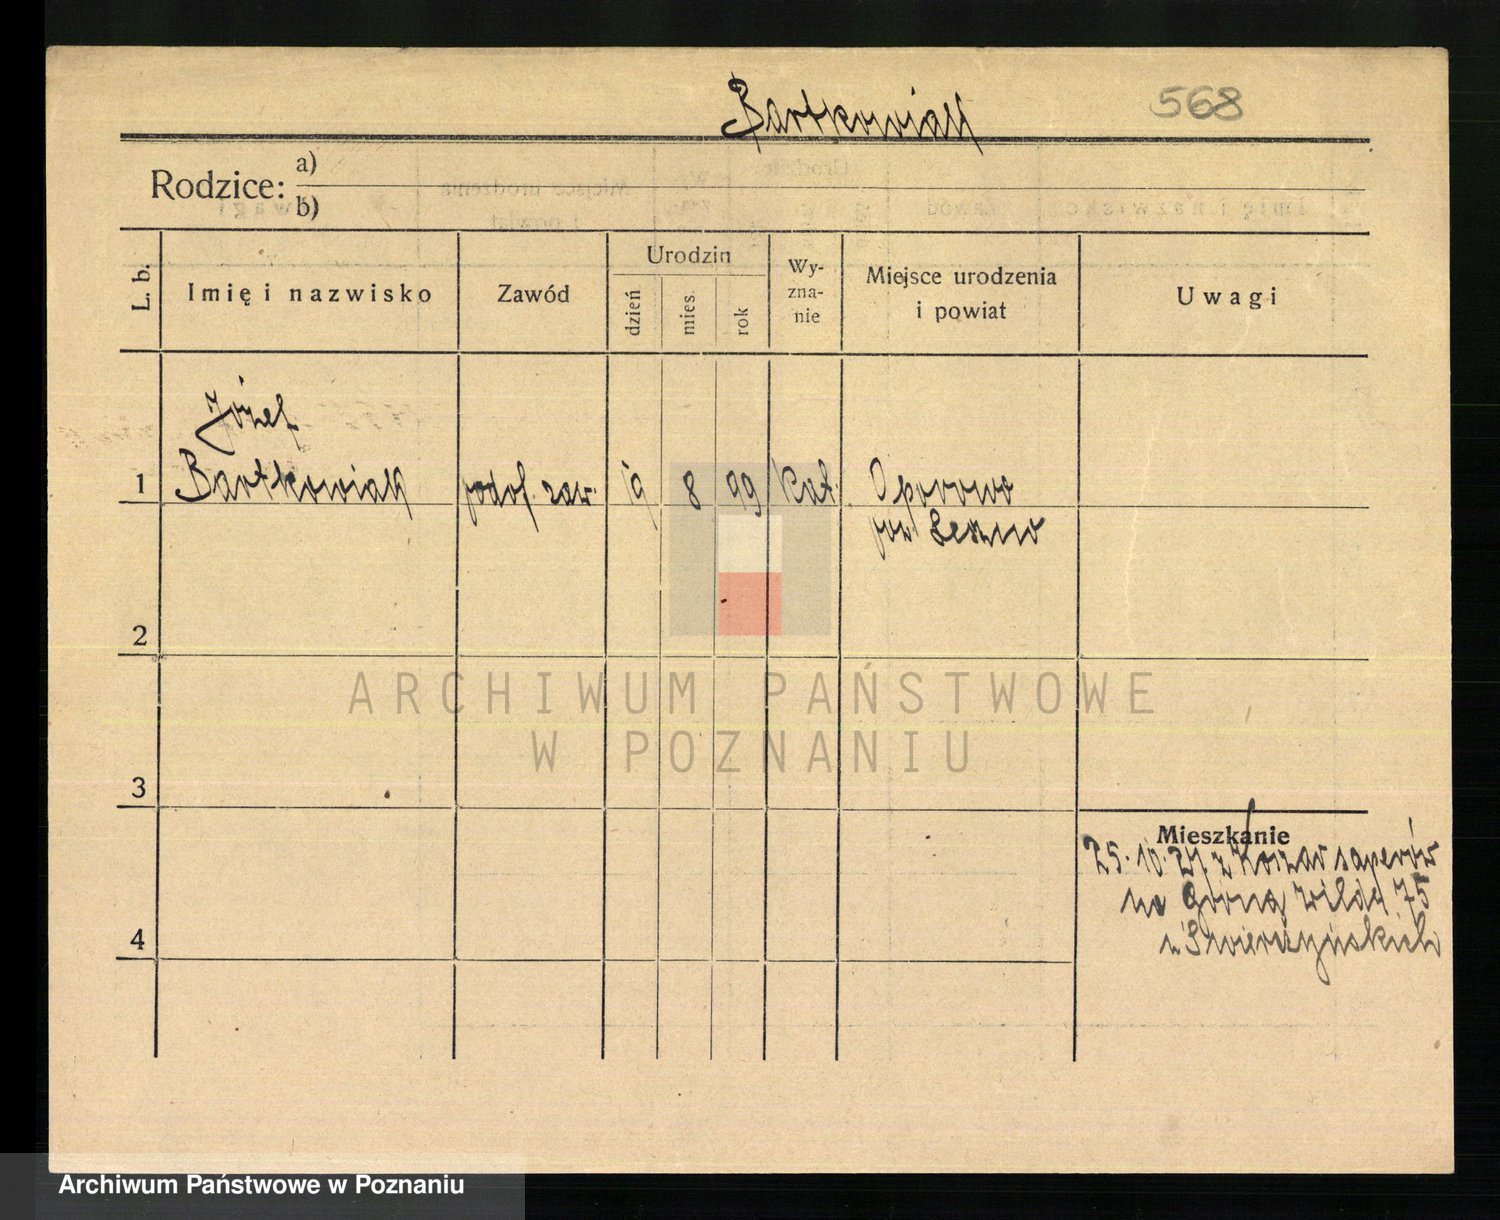 Bartkowiak
568
Rodzice: a)
b)
L. b.
Imię i nazwisko
Zawód
Urodzin
dzień
mies.
rok
Wy-
zna-
nie
Miejsce urodzenia
i powiat
Uwagi
Józef
1 Bartkowiak podof. zaw. 19 8 99 kat. Oporowo
pow. Leszno
2
ARCHIWUM PAŃSTWOWE
W POZNANIU
3
Mieszkanie
25.10.27 z Koszar saperów
na Górną Wildę 75
u Świerczyńskich
4
Archiwum Państwowe w Poznaniu